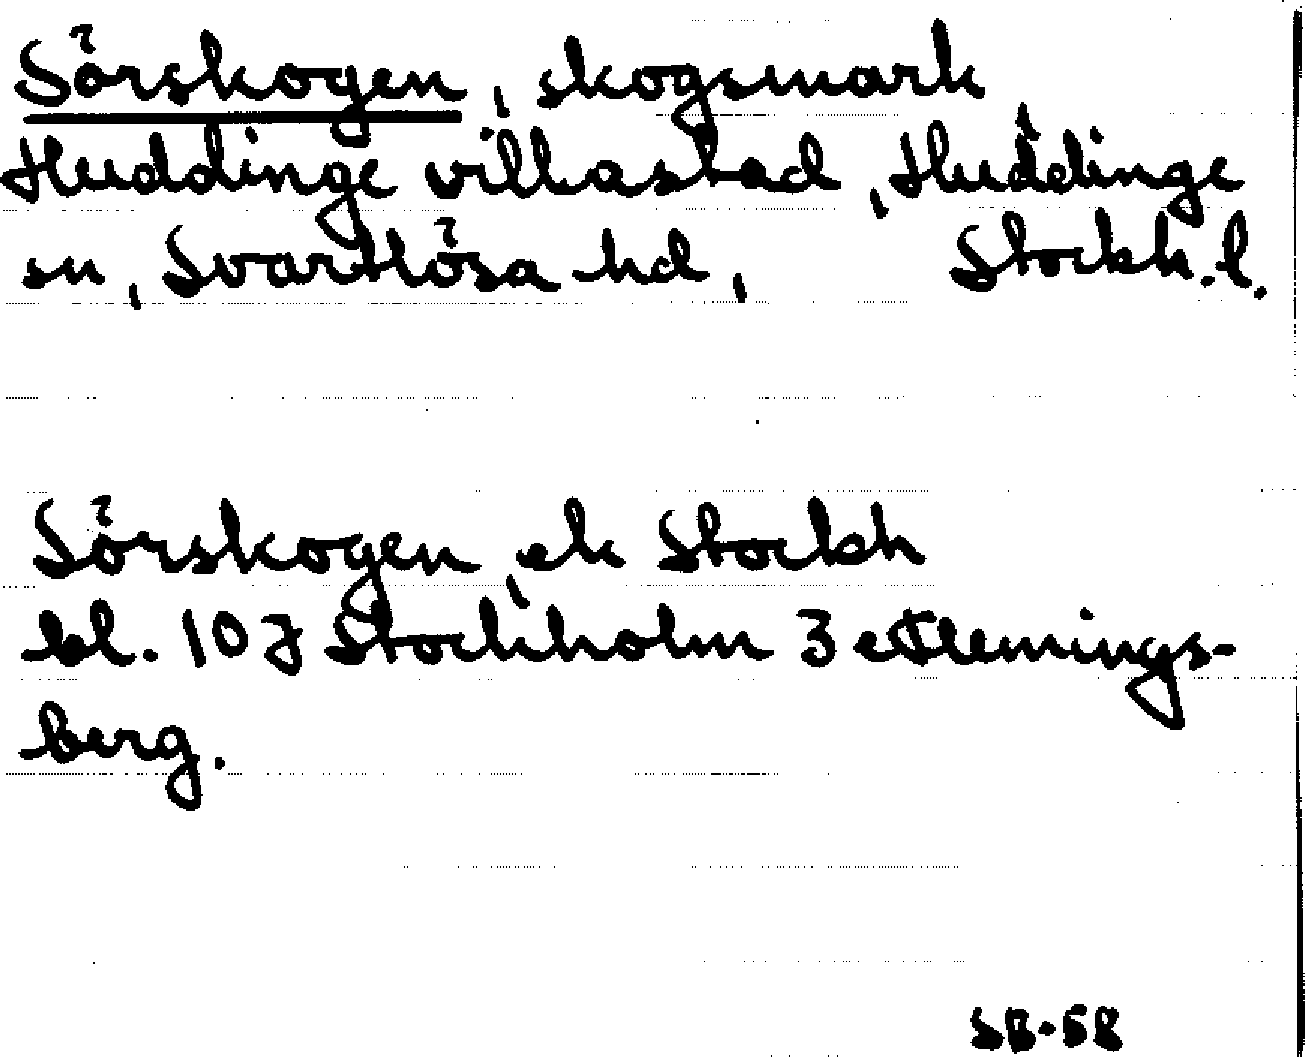 Sörskogen, skogsmark
Huddinge villastad, Huddinge
sn, Svartlösa hd, Stockh. l.
Sörskogen, ek Stockh
bl. 10 J Stockholm 3 e Flemings-
berg.
SB-58